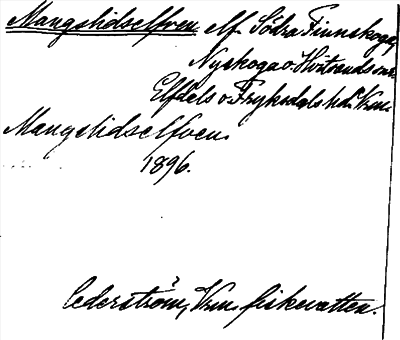 Mangslidselfven elf. Södra Finnskoga,
Nyskoga o. Hvitsands snr
Elfdels o. Fryksdals hd. Vrm.
Mangslidselfven
1896.
Cederström, Vrm. fiskevatten.